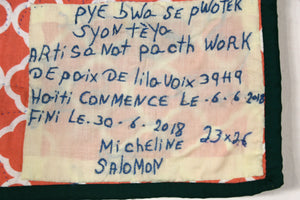 PYE bwA SE PWOTEK
SYON TÈYA
ARTiSANOT PACTH WORK
DE PAIX DE lilAVOIX 39H9
HAiTi CONMENCE LE.6.6 2018
FiNi LE.30-6.2018
23x26
MicHELiNE
SALOMON